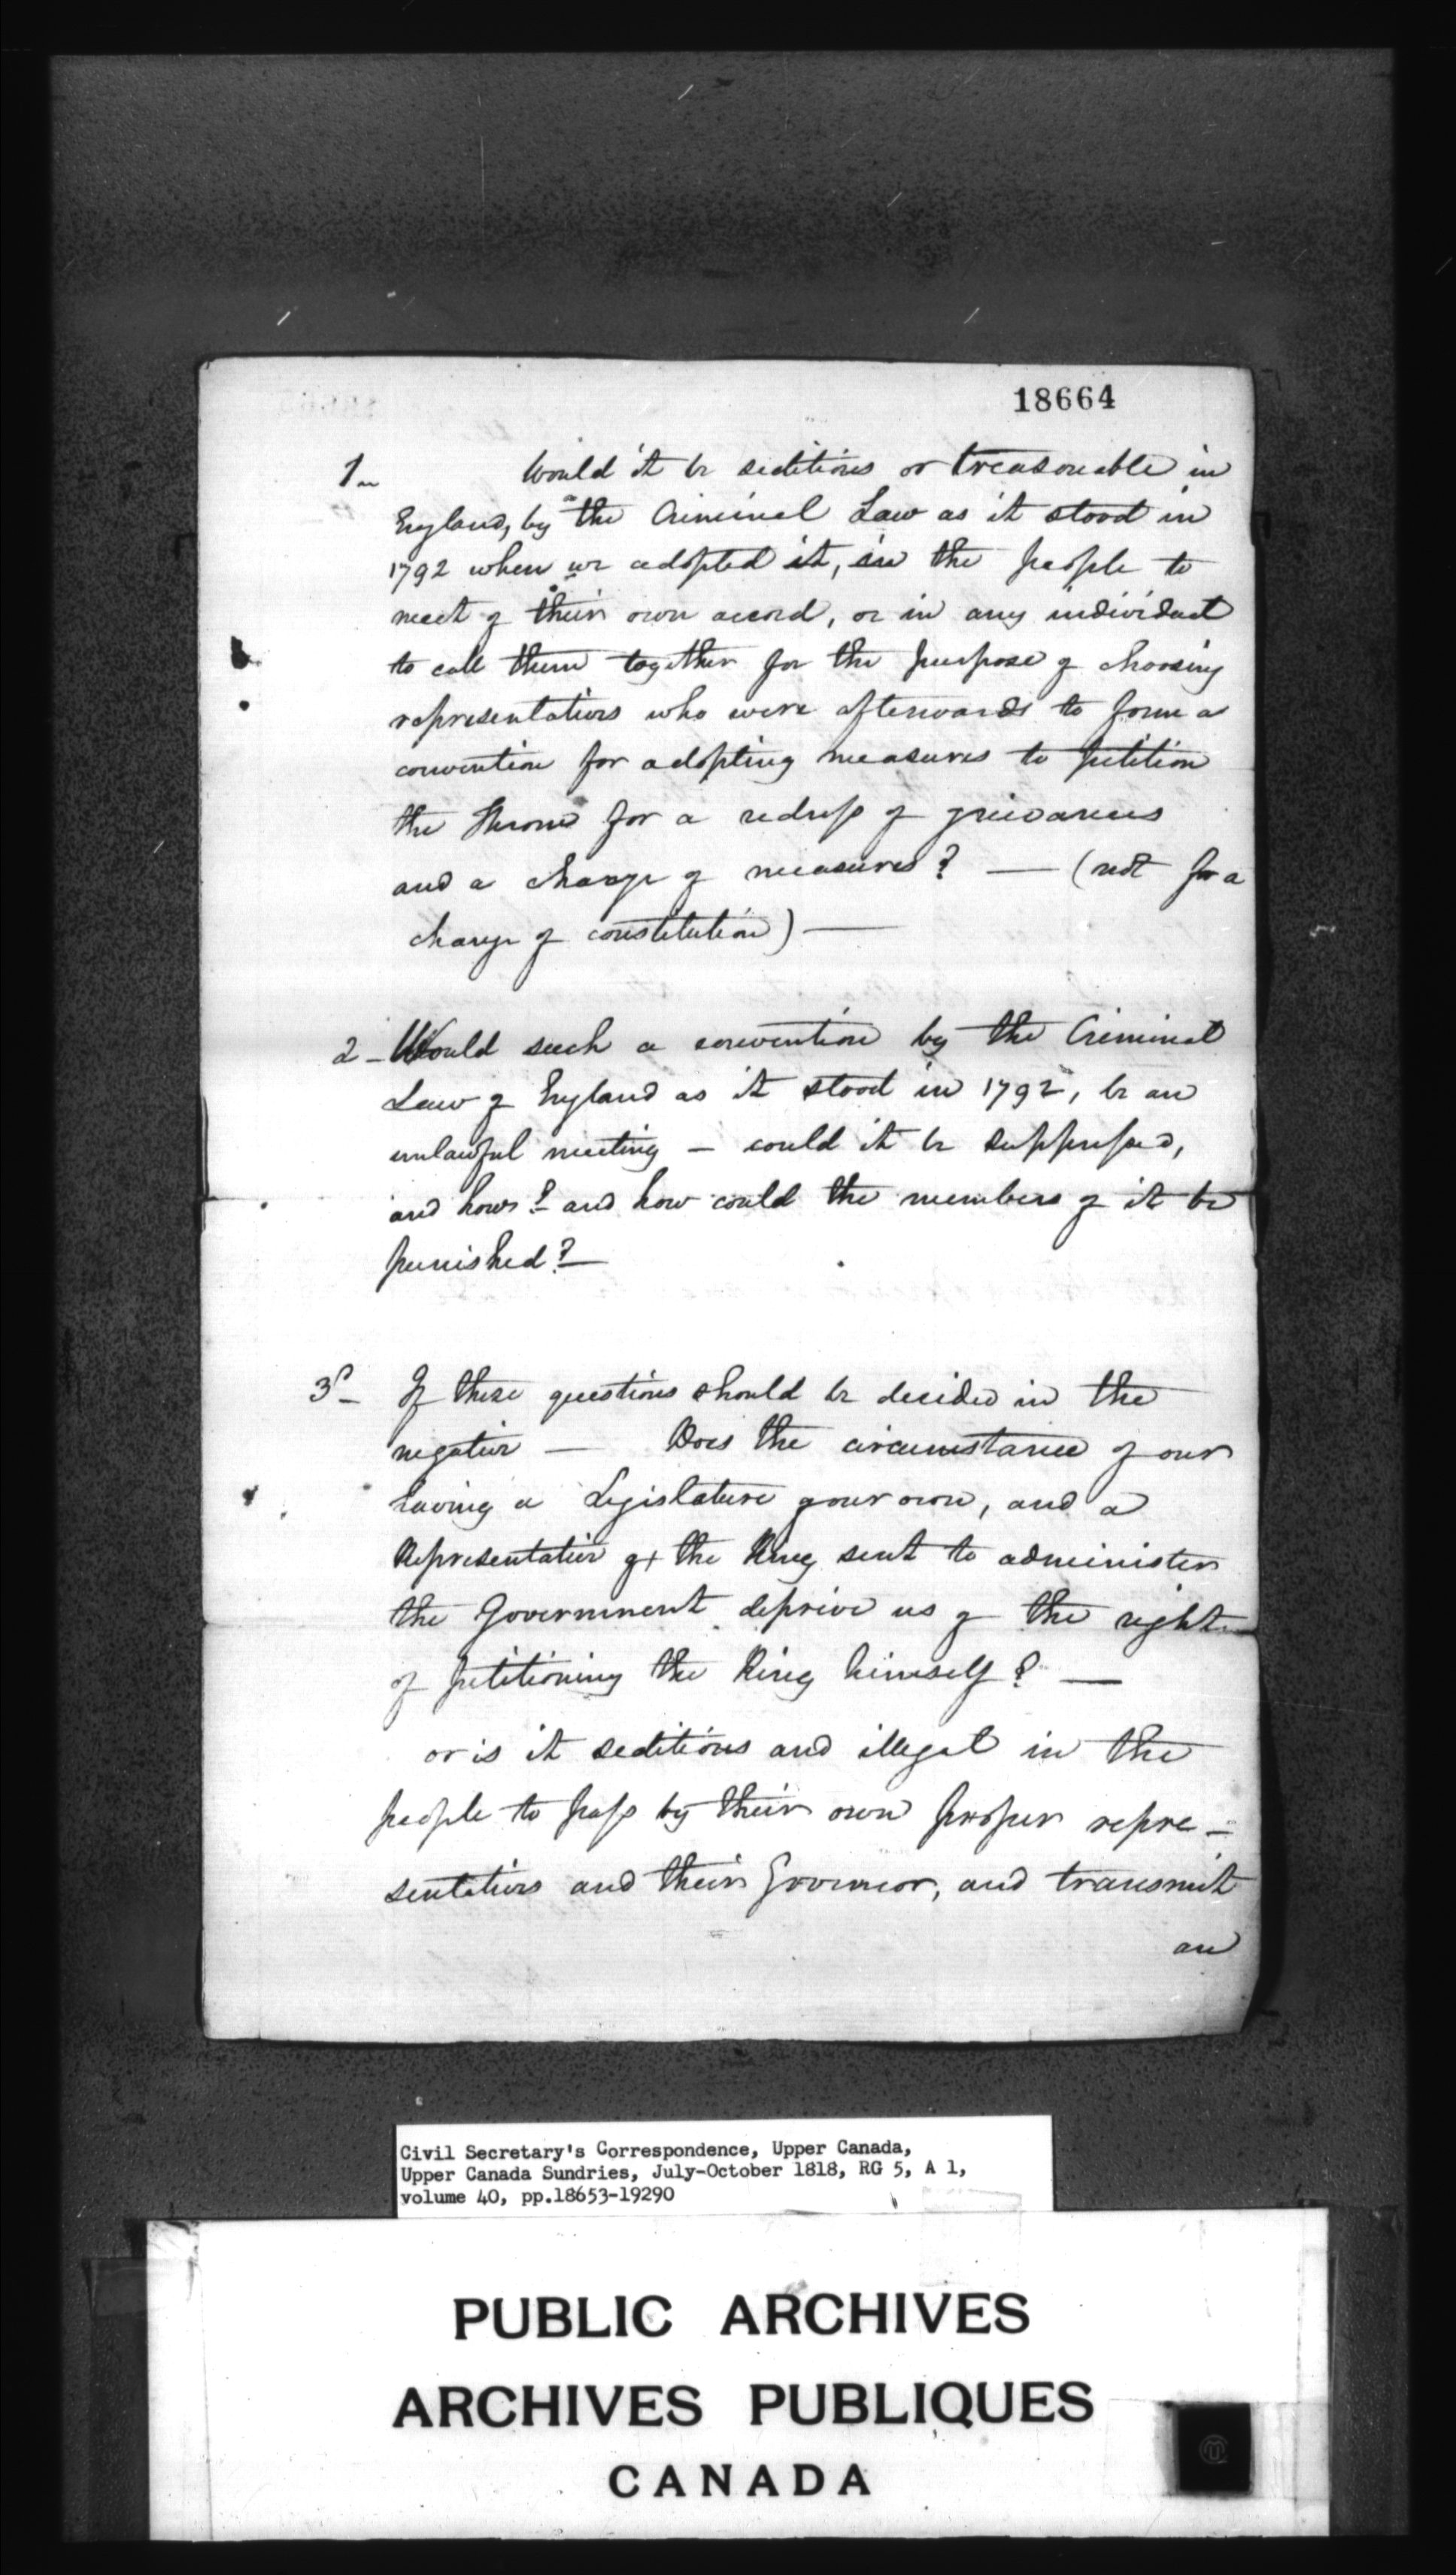 18664
1_ Would it be seditious or treasonable in
England, by the Criminal Law as it stood in
1792 when we adopted it, in the people to
meet of their own accord, or in any individual
to call them together for the purpose of choosing
representatives who were afterwards to form a
convention for adopting measures to petition
the throne for a redress of grievances
and a change of measures? — (not for a
change of constitution) —
2 - Would such a convention by the Criminal
Law of England as it stood in 1792, be an
unlawful meeting — could it be suppressed,
and how? and how could the members of it be
punished? —
3d - If these questions should be decided in the
negative — Does the circumstance of our
having a Legislature of our own, and a
Representative of the King sent to administer
the Government deprive us of the right
of petitioning the King himself? —
or is it seditious and illegal in the
people to pass by their own proper repre-
sentatives and their Governor, and transmit
an
Civil Secretary's Correspondence, Upper Canada,
Upper Canada Sundries, July-October 1818, RG 5, A 1,
volume 40, pp.18653-19290
PUBLIC ARCHIVES
ARCHIVES PUBLIQUES
CANADA